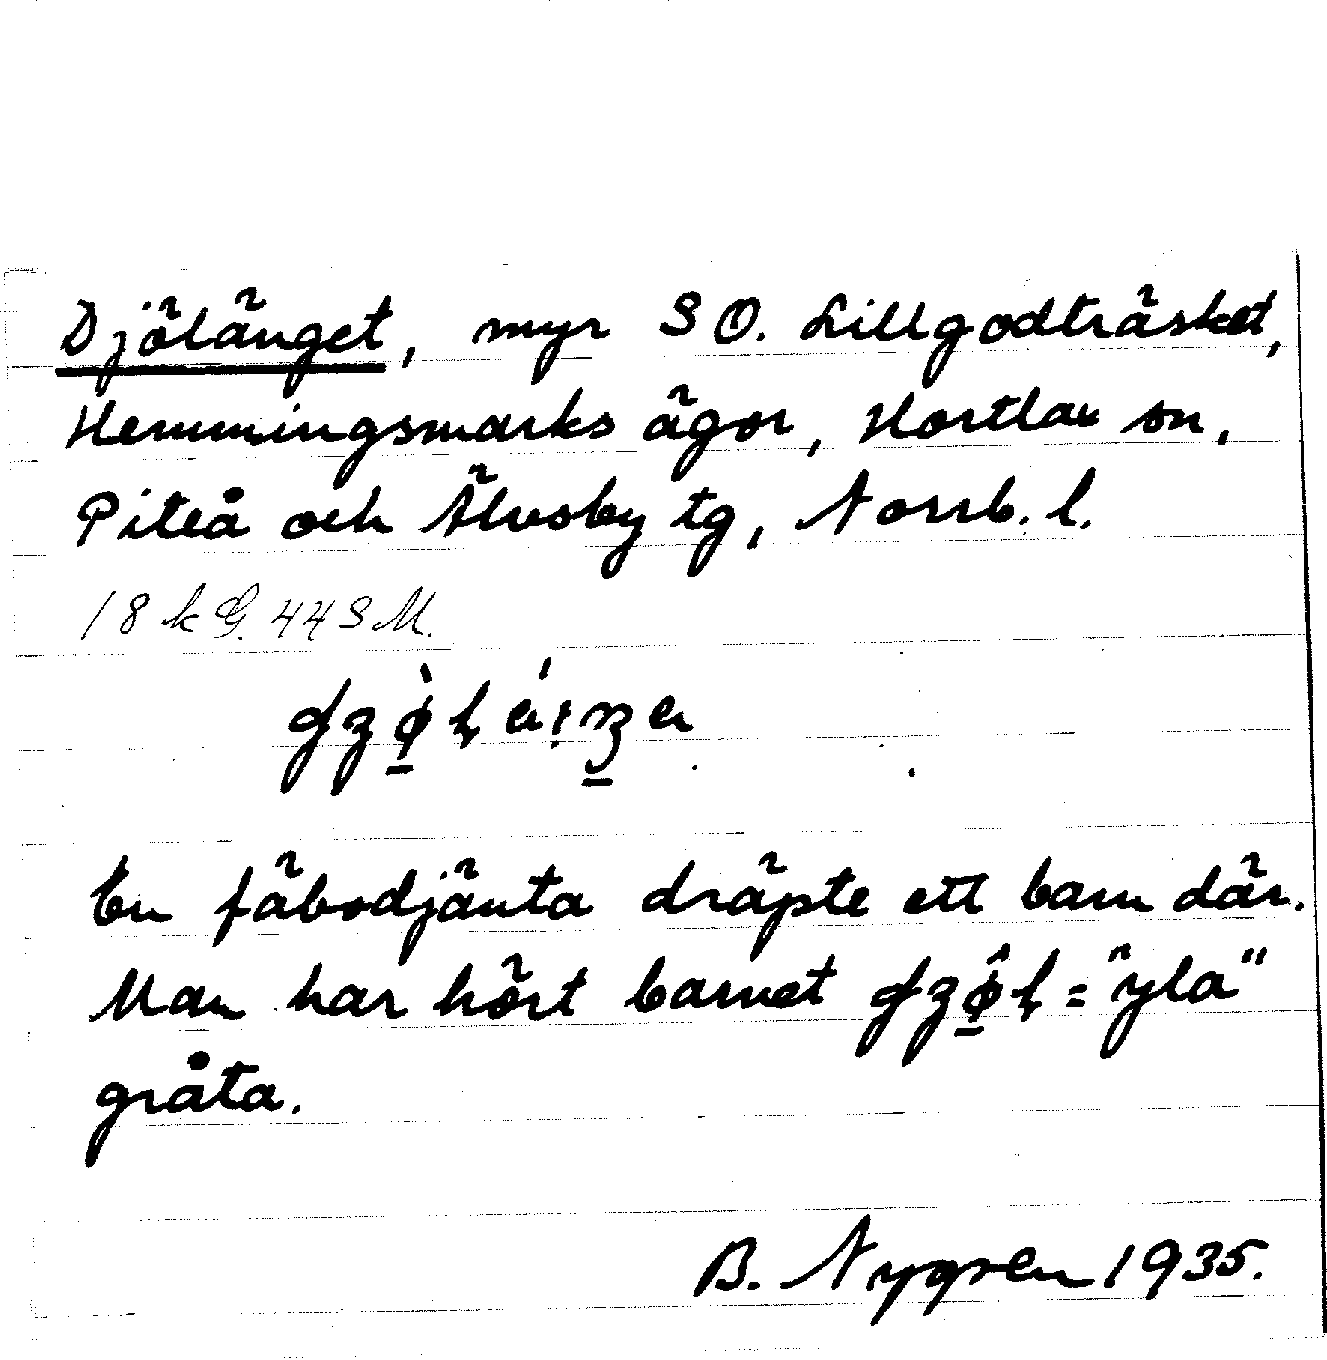 Djölänget, myr S O. Lillgodträsket,
Hemmingsmarks ägor, Hortlax sn,
Piteå och Älvsby tg, Norrb. l.
18 k G. 44 S M.
En fäbodjänta dräpte ett barn där.
Man har hört barnet = "yla"
gråta.
B. Nygren 1935.